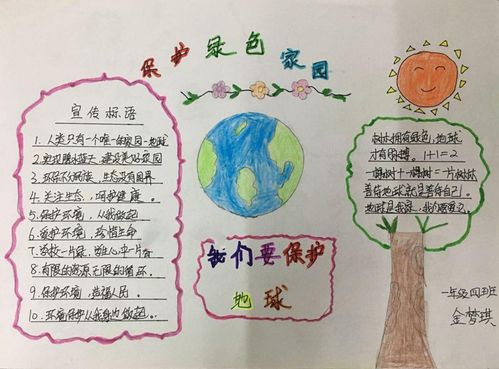 保护绿色家园
宣传标语
1. 人类只有一个唯一的家园—地球
2. 实现碧水蓝天,建设美好家园
3. 环保不分民族,生态没有国界
4. 关注生态,呵护健康。
5. 保护环境,从我做起
6. 爱护环境,珍惜生命
8. 有限的资源无限的循环。
9. 保护环境,造福人民。
10. 环境保护从我身边做起。
我们要保护
地球
树木拥有绿色,地球
才有脉搏。1+1=2
一棵树+一棵树=一片树林
善待地球就是善待自己。
地球是我家,
一年级四班
金梦琪